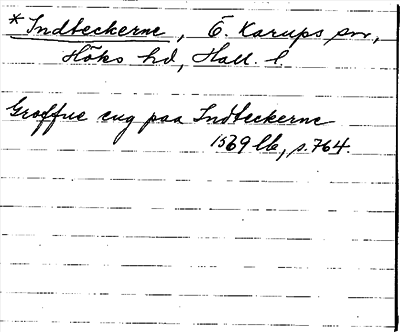 * Indbeckerne, Ö. Karups sn,
Höks hd, Hall. l.
Groffue eng paa Indbeckerne
1569 lb, s. 764.